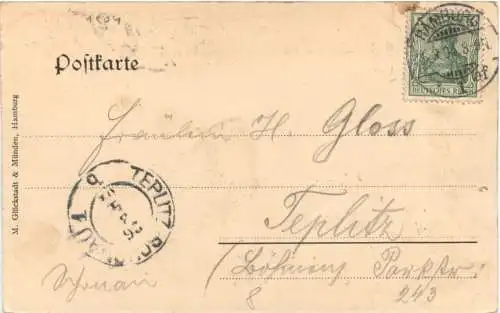 1904
HAMBURG
Postkarte
DEUTSCHES REICH
M. Glückstadt & Münden, Hamburg
Fräulein H. Gloss
TEPLITZ-SCHÖNAU 1
Teplitz
Schönau
(Böhmen) Parkstr.
8 243